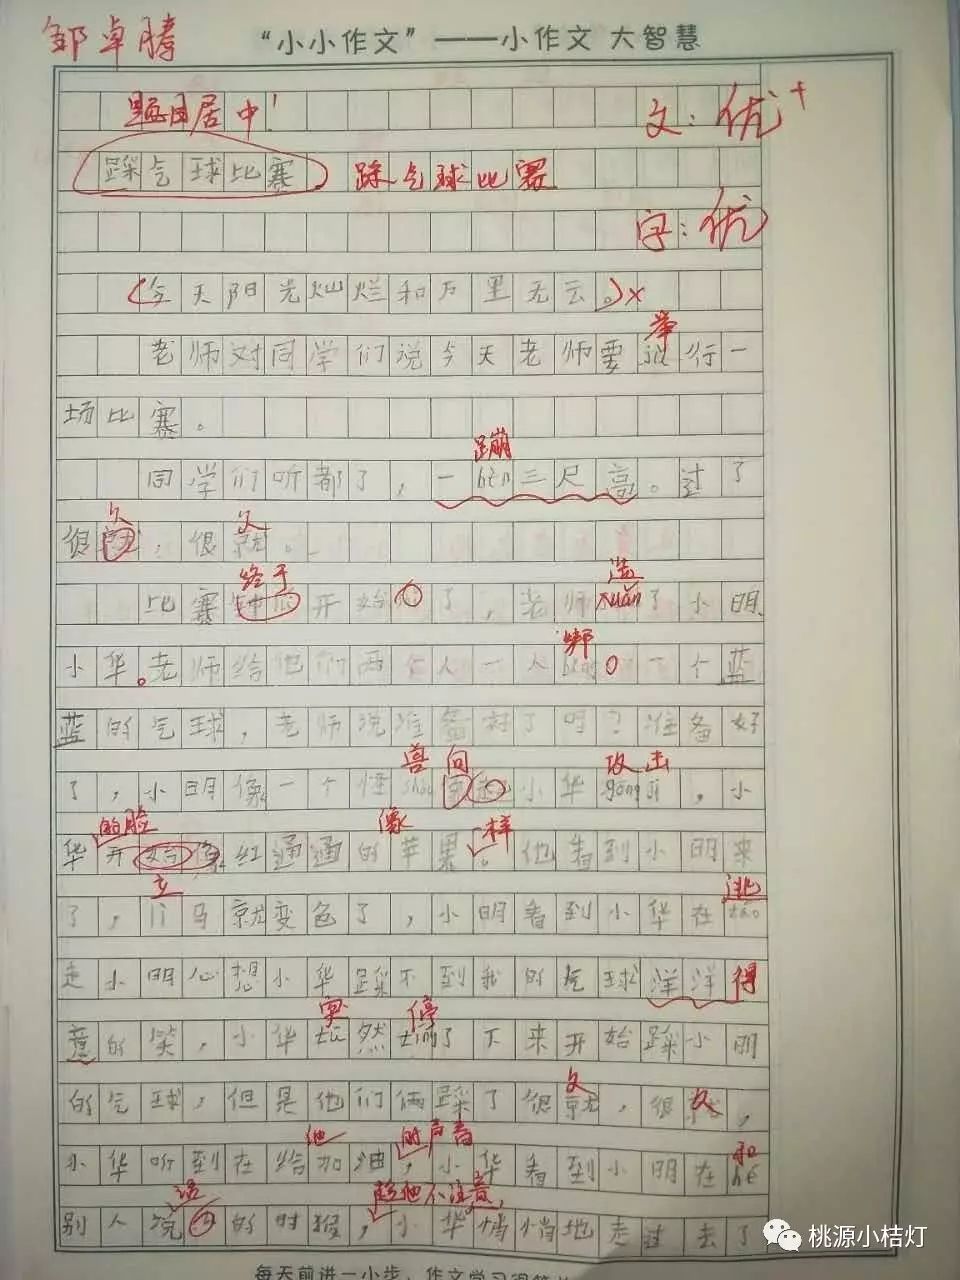 邹卓腾
“小小作文”——小作文 大智慧
题目居中！
文：优+
踩气球比赛 踩气球比赛
字：优
（今天阳光灿烂和万里无云。）×
举
老师对同学们说今天老师要ju行一
场比赛。
蹦
同学们听都了，一bèn三尺高。过了
久 久
很就，很就。
终于 选
比赛开始了，老师xuǎn了小明
绑
小华。老师给他们两个人一人一个蓝
蓝的气球，老师说准备好了吗？准备好
兽向 攻击
了，小明像一个怪shòu小华gōng jī，小
的脸 像 样
华开始像红通通的苹果。他看到小明来
立 逃
了，li马就变色了，小明看到小华在táo
走小明心想小华踩不到我的气球洋洋得
突 停
意的笑，小华tū然tíng了下来开始踩小明
久 久
的气球，但是他们俩踩了很就，很就，
他 的声音 和
小华听到在给加油，小华看到小明在hé
话 趁他不注意，
别人说的时候，小华悄悄地走过去了
每天前进一小步，作文学习很简
桃源小桔灯